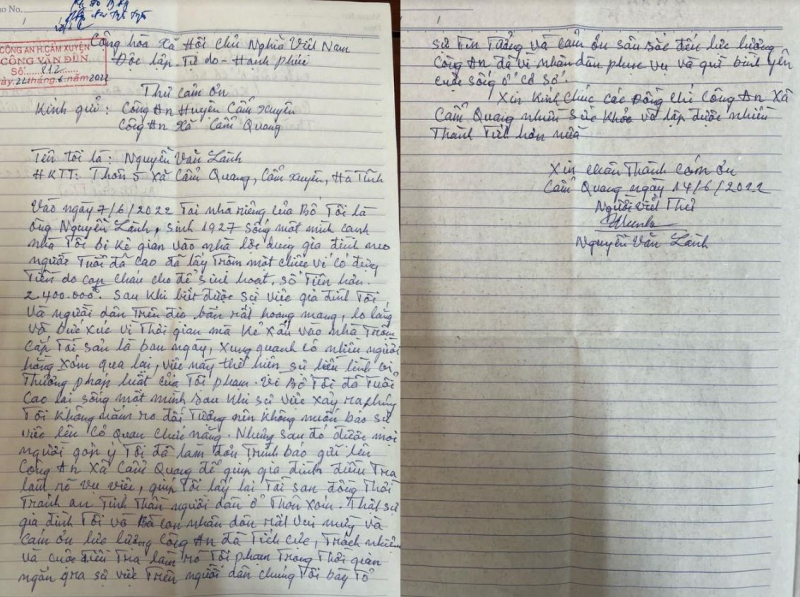 No.
CÔNG AN H.CẨM XUYÊN
CÔNG VĂN ĐẾN
Số:....X12...
Ngày:22 tháng 6 năm 2022
Cộng hòa Xã Hội Chủ Nghĩa Việt Nam
Độc lập - Tự do - Hạnh phúc
Thư cảm ơn
Kính gửi: Công An Huyện Cẩm Xuyên
Công An Xã Cẩm Quang
Tên tôi là: Nguyễn Văn Lành
HKTT: Thôn 5 Xã Cẩm Quang, Cẩm Xuyên, Hà Tĩnh
Vào ngày 7/6/2022 Tại nhà riêng của Bố Tôi là
ông Nguyễn Lành, sinh 1927 sống một mình cạnh
nhà Tôi bị kẻ gian vào nhà lợi dụng gia đình neo
người Tuổi đã cao đã lấy trộm một chiếc ví có đựng
Tiền do con cháu cho để sinh hoạt, số Tiền hơn
2.400.000đ. Sau khi biết được sự việc gia đình Tôi
và người dân Trên địa bàn rất hoang mang, lo lắng
và bức xúc vì Thời gian mà kẻ xấu vào nhà Trộm
cắp Tài sản là ban ngày, xung quanh có nhiều người
hàng xóm qua lại, việc này thể hiện sự liều lĩnh coi
Thường pháp luật của Tội phạm. Vì Bố Tôi đã Tuổi
cao lại sống một mình sau khi sự việc xảy ra phía
Tôi không nắm rõ đối Tượng nên không muốn báo sự
việc lên cơ quan chức năng. Nhưng sau đó được mọi
người gợi ý Tôi đã làm đơn Trình báo gửi lên
Công An Xã Cẩm Quang để giúp gia đình điều Tra
làm rõ vụ việc, giúp Tôi lấy lại Tài sản đồng Thời
Trấn an Tinh Thần người dân ở Thôn xóm. Thật sự
gia đình Tôi và Bà con nhân dân rất vui mừng và
cảm ơn lực lượng Công An đã Tích cực, Trách nhiệm
và cuộc điều Tra làm rõ Tội phạm Trong Thời gian
ngắn qua sự việc Trên người dân chúng Tôi bày Tỏ
sự Tin Tưởng và cảm ơn sâu sắc đến lực lượng
Công An đã vì nhân dân phục vụ và giữ bình yên
cuộc sống ở cơ sở.
Xin Kính Chúc các Đồng Chí Công An Xã
Cẩm Quang nhiều Sức Khỏe và lập được nhiều
Thành Tích hơn nữa
Xin chân Thành cảm ơn
Cẩm Quang ngày 14/6/2022
Người viết Thư
Nguyễn Văn Lành